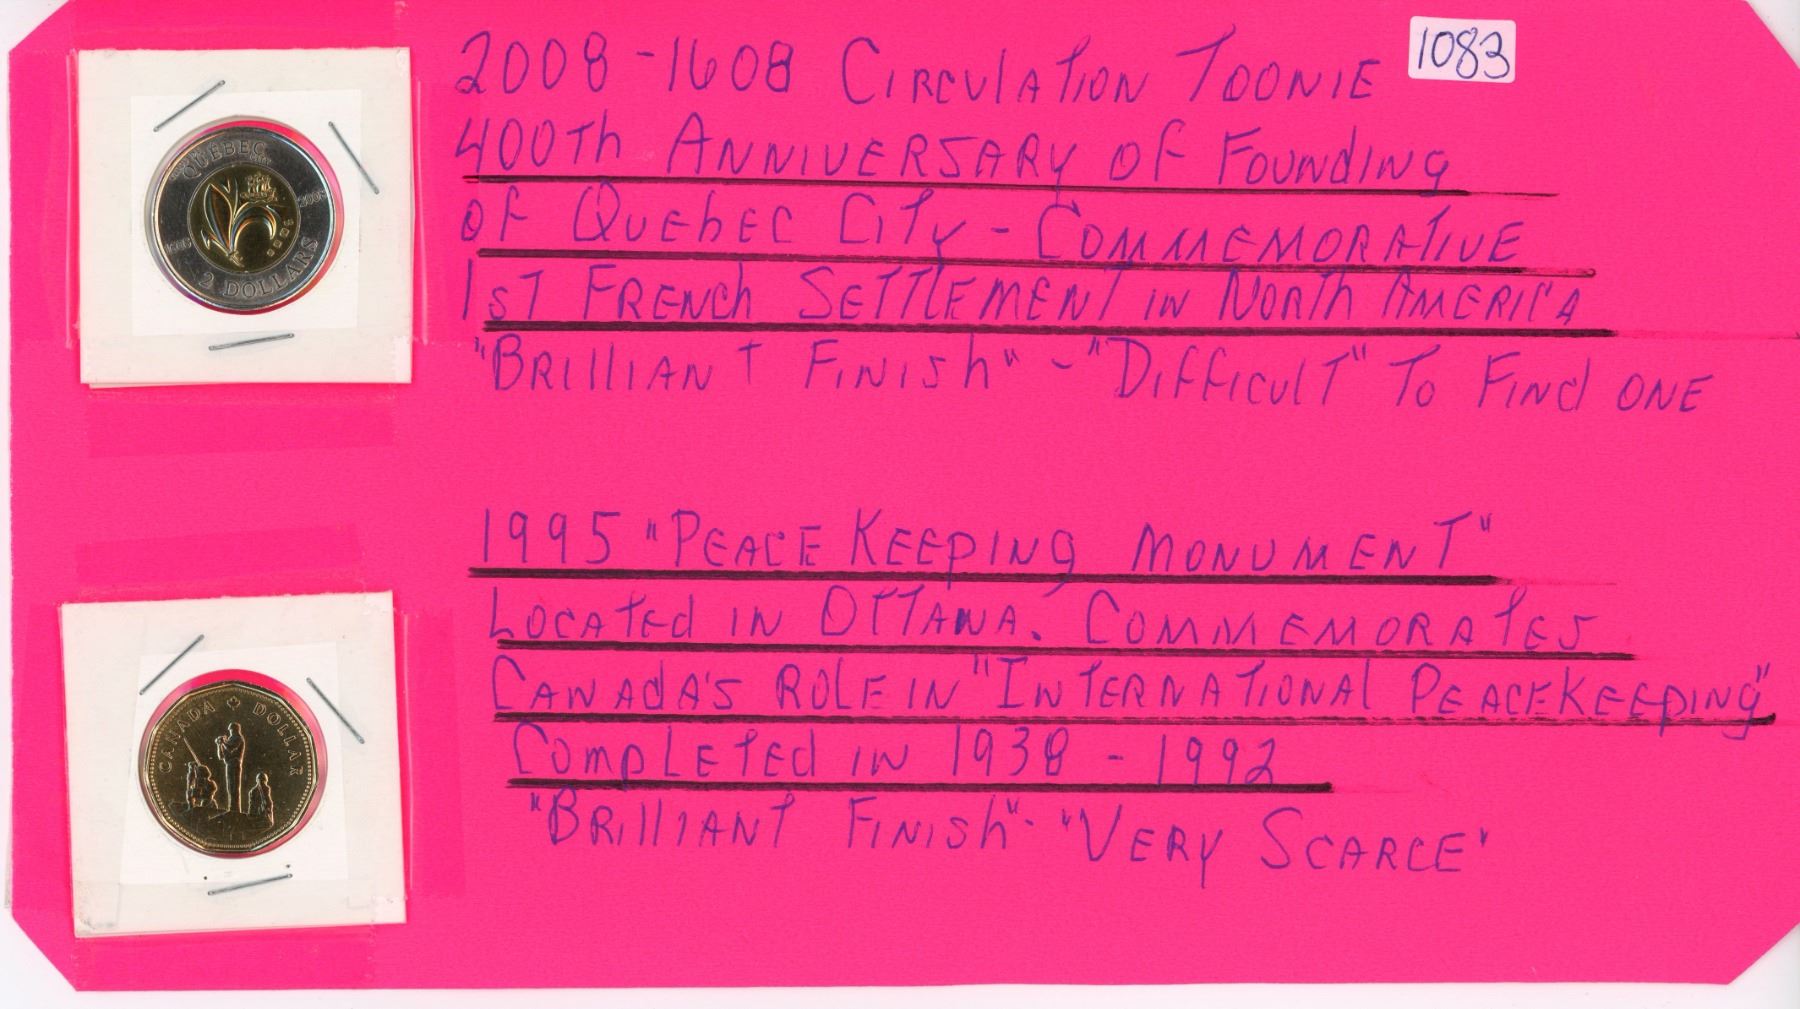 1083
2008-1608 Circulation Toonie
400th Anniversary of Founding
of Quebec City - Commemorative
1st French Settlement in North America
"Brilliant Finish" - "Difficult" To Find one
QUÉBEC
CITY
1608
2008
2 DOLLARS
1995 "Peace Keeping Monument"
Located in Ottawa. Commemorates
Canada's Role in "International Peacekeeping"
Completed in 1938 - 1992
"Brilliant Finish" - "Very Scarce"
CANADA DOLLAR